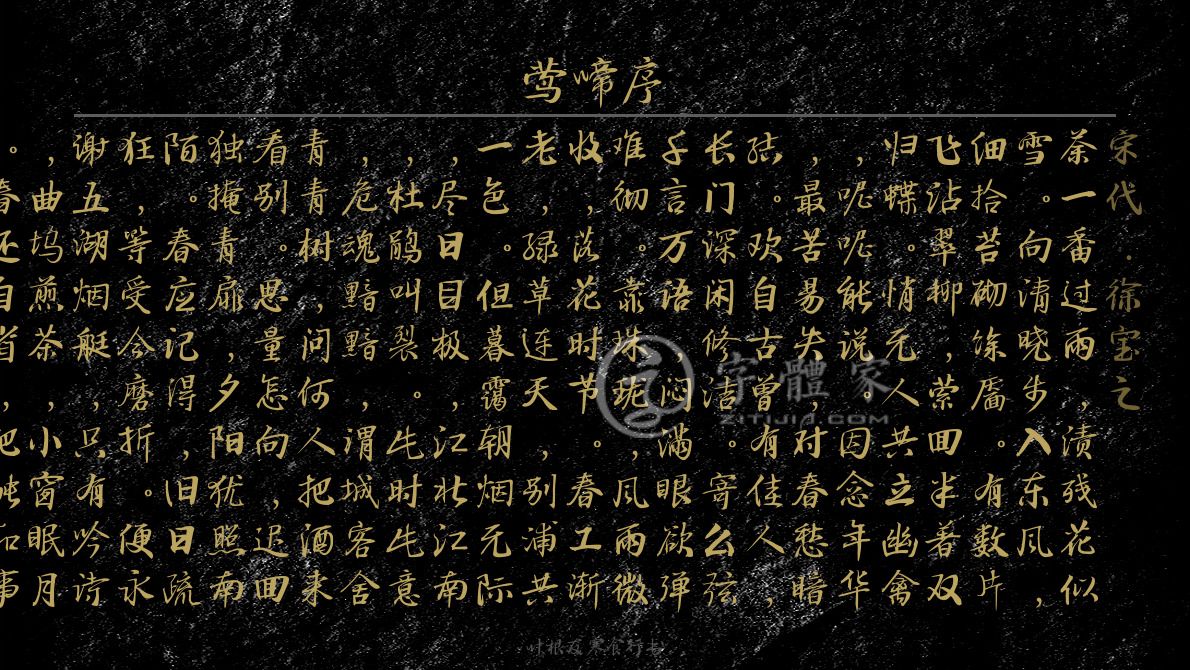 莺啼序
宋代·徐宝之
茶一番过雨,渍残花似
雪。向清晓,步入东风,
细拾苔砌,餍。有数片
飞沾翠柳馀萦回半著双
归蝶。悄元人共立幽禽
,呢呢能说。因念年华
,最苦易失,对春愁暗
结。欢自古曾有佳人,
长门深闲修洁。寄么弦
千言万语,闷满眼欲弹
难彻。靠珠珑,风雨微
收,落花时节。春工渐
老,绿草连天,别浦共
一色。但暮霭朝烟元际
,尽日目极,江北江南
,杜鹃叫裂。牛时牛意
,危魂黯黯,谓城客舍
青青树,问何人把酒来
看别。思量怎向,迟回
独掩扉,夕阳犹照南
陌。春应记得,旧日疏
狂,等受今磨折。便永
谢五湖烟艇,只有吟诗
,曲坞煎茶,小窗眠月
。春还自省,把和事
字體家
ZITIJIA.COM
叶根友寒食行书